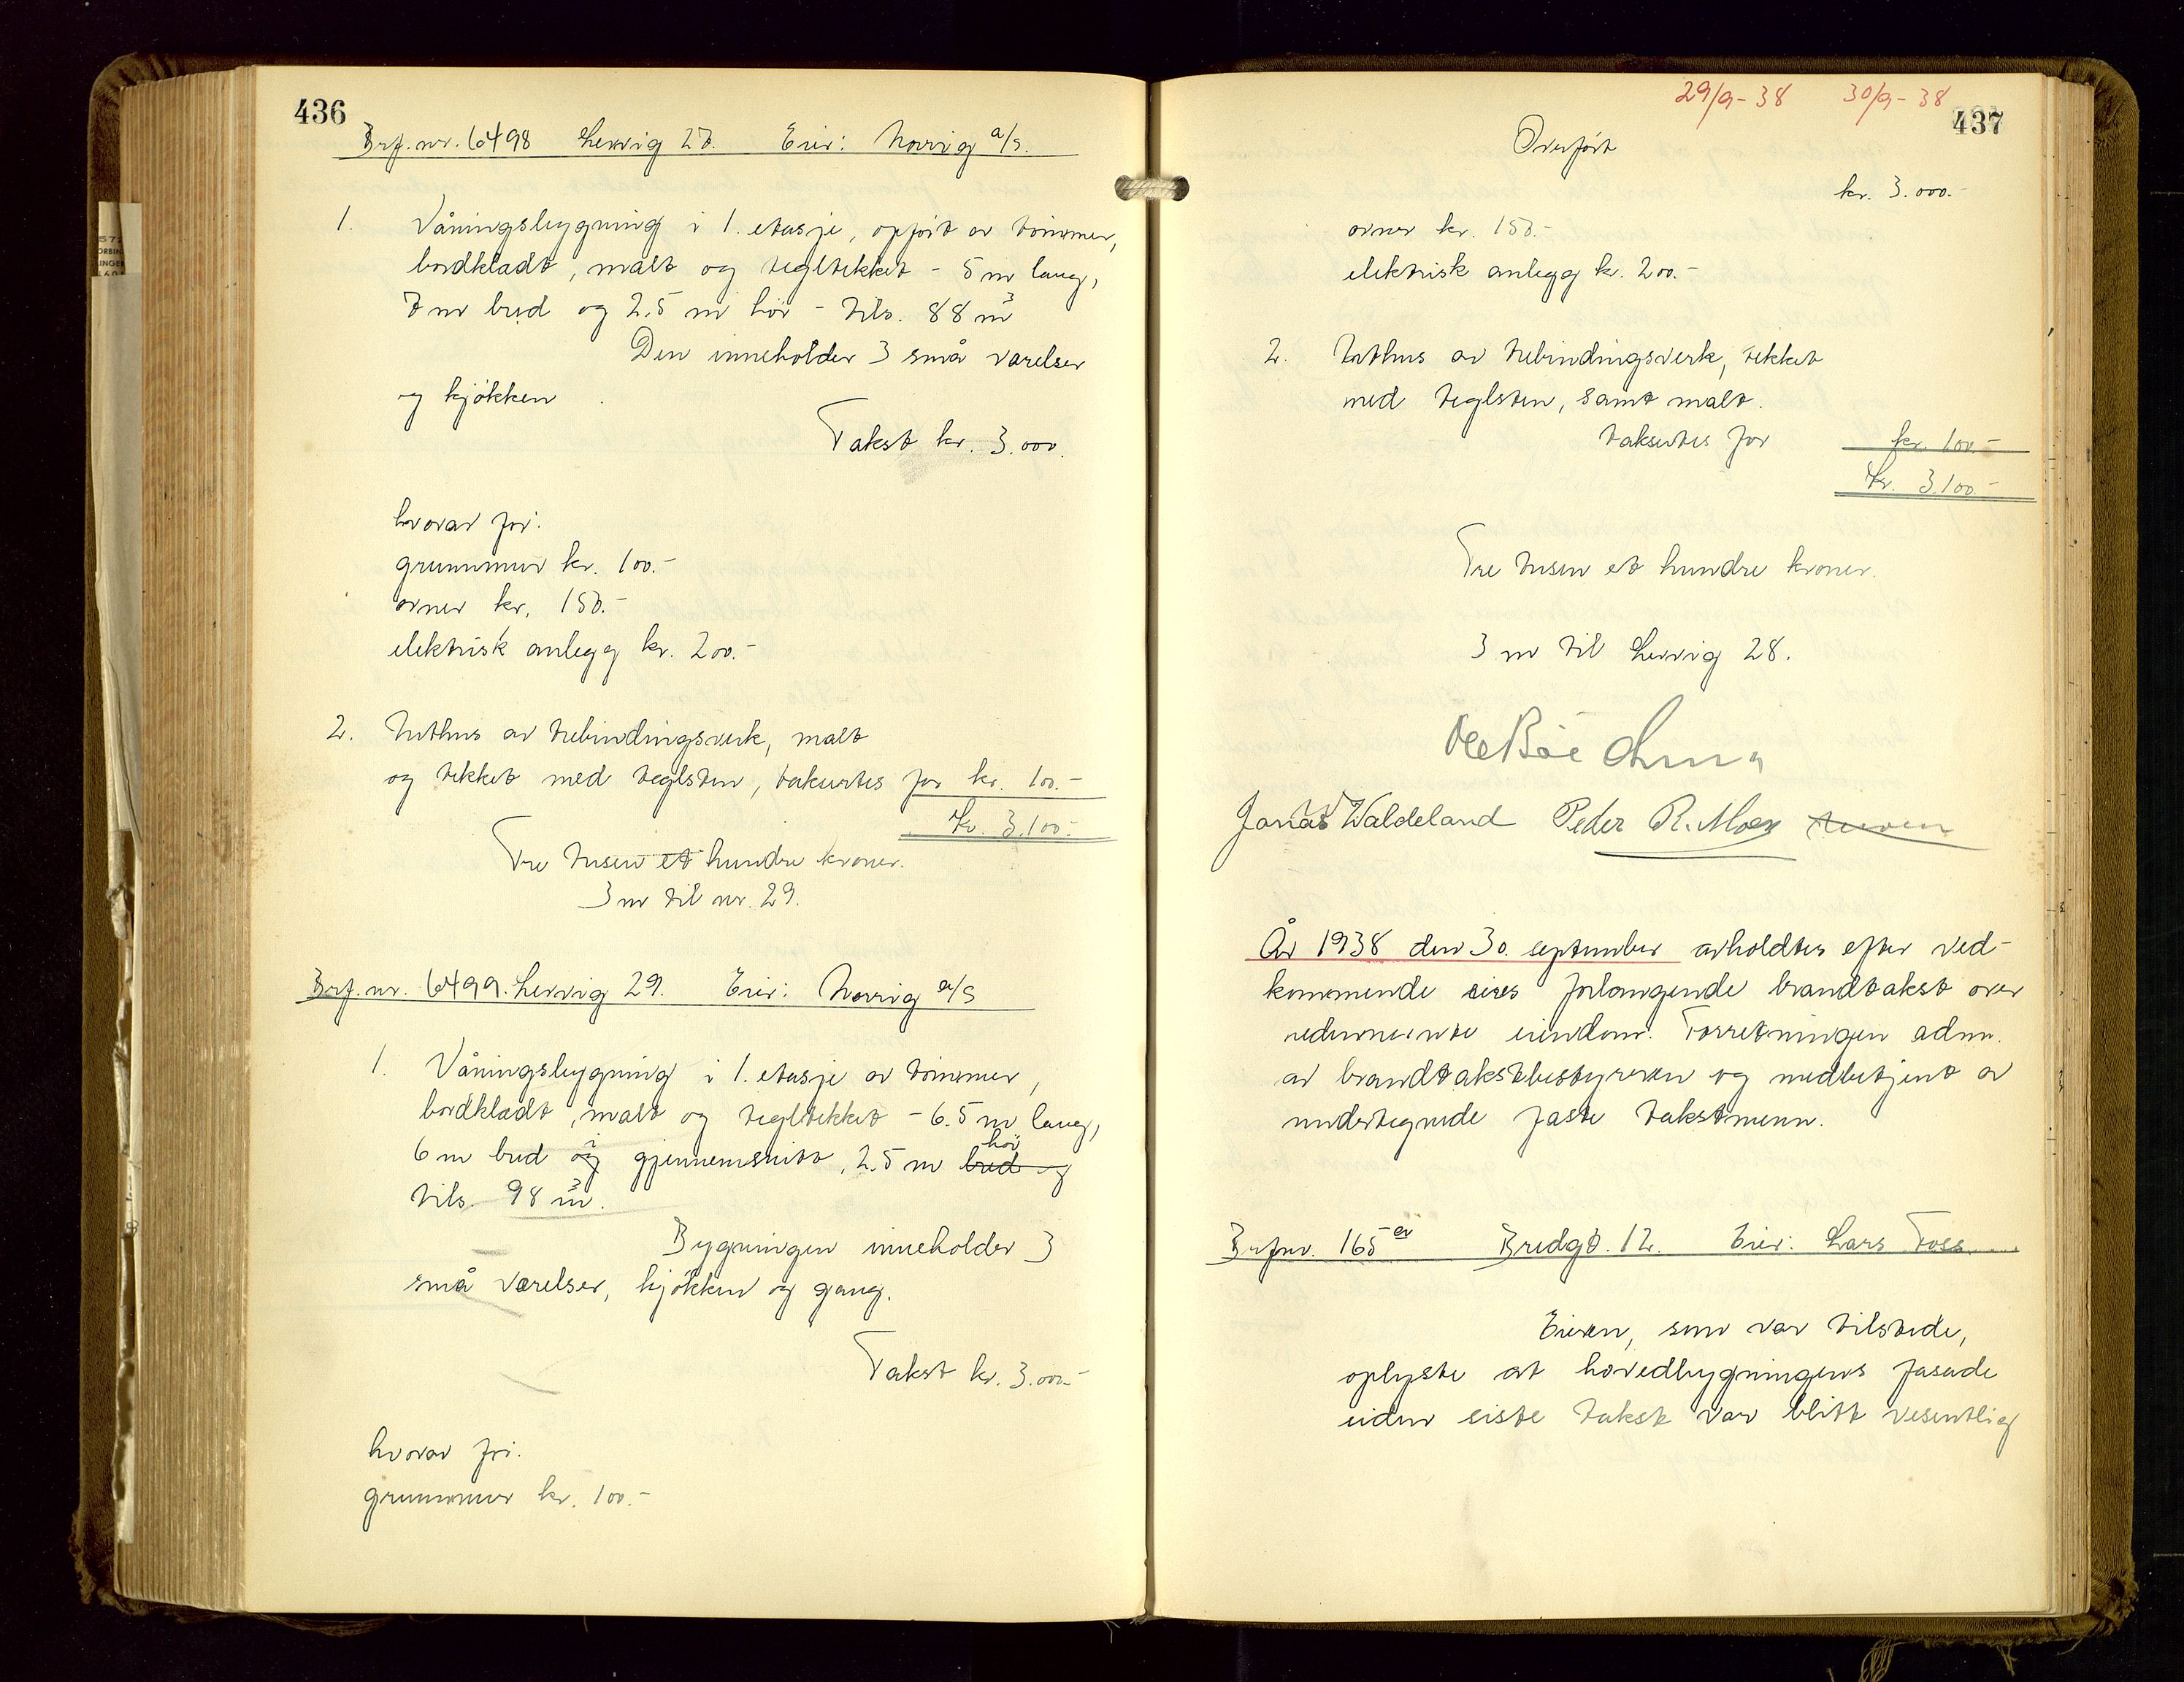 436
Brf.nr. 6498 Lervig 28. Eier: Norvig a/s.
1. Våningsbygning i 1. etasje, opført av tømmer,
bordkledt, malt og tegltekket - 5 m lang,
7 m bred og 2,5 m høi - tils. 88 m³
Den inneholder 3 små værelser
og kjøkken.
Takst kr. 3.000.
hvorav for:
grunnmur kr. 100.-
ovner kr. 150.-
elektrisk anlegg kr. 200.-
2. Uthus av utbindingsverk, malt
og tekket med teglsten, taksertes for kr. 100.-
Kr. 3.100.-
Tre tusen et hundre kroner.
3 m til nr. 29.
Brf.nr. 6499. Lervig 29. Eier: Norvig a/s
1. Våningsbygning i 1. etasje av tømmer,
bordkledt, malt og tegltekket - 6.5 m lang,
6 m bred og i gjennemsnitt, 2,5 m bred og høi
tils. 98 m³.
Bygningen inneholder 3
små værelser, kjøkken og gang.
Takst kr. 3.000.-
hvorav for:
grunnmur kr. 100.-
29/9-38 30/9-38
437
Overført
kr. 3.000.-
ovner kr. 150.-
elektrisk anlegg kr. 200.-
2. Uthus av utbindingsverk, tekket
med teglsten, samt malt.
taksertes for kr. 100.-
Kr. 3.100.-
Tre tusen et hundre kroner.
3 m til Lervig 28.
Jonas Waldeland Peder R. Moen
År 1938 den 30. september avholdtes efter ved-
kommende eiers forlangende brandtakst over
nedennevnte eiendom. Forretningen adm.
av brandtakstbestyreren og medbetjent av
undertegnede faste takstmenn.
Brfnr. 165 Bredgt. 12. Eier: Lars Foss
Eieren, som var tilstede,
oplyste at hovedbygningens fasade
siden siste takst var blitt vesentlig